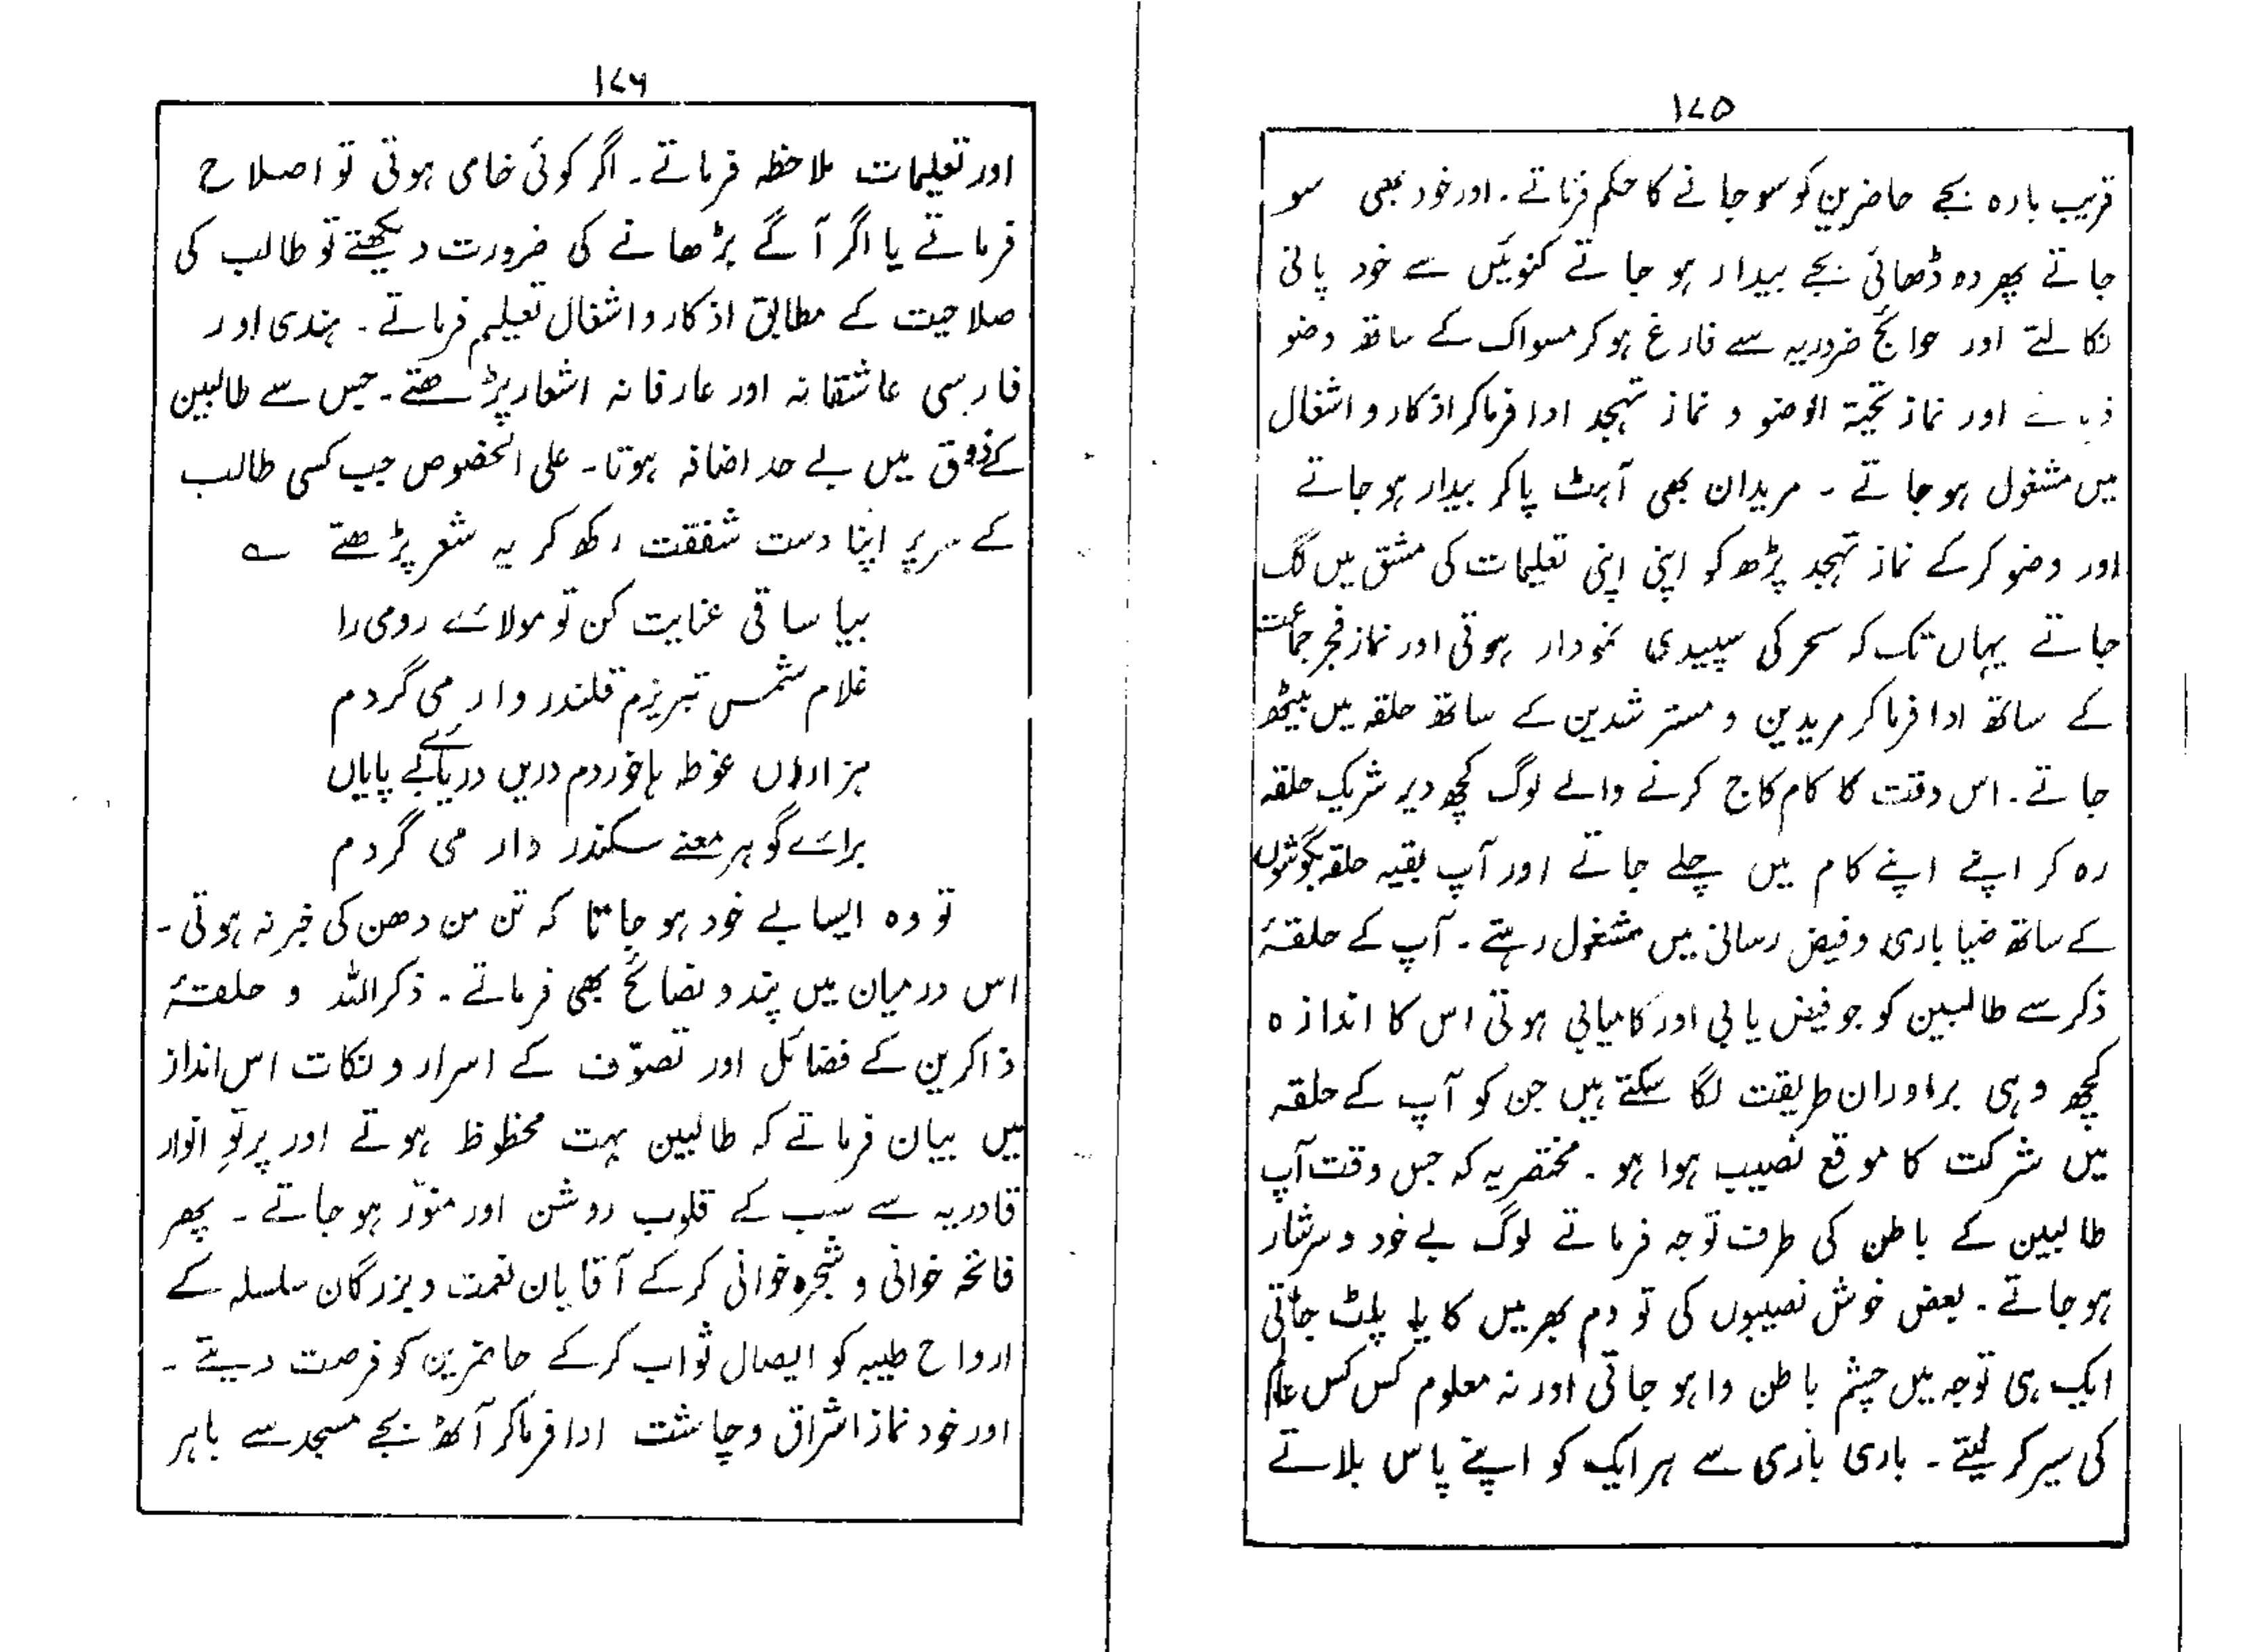 ۱۷۵
قریب بارہ بجے حاضرین کو سو جانے کا حکم فرماتے۔ اور خود بھی سو
جاتے پھر دہ ڈھائی بجے بیدار ہو جاتے کنوئیں سے خود پانی
نکالتے اور حوائج ضروریہ سے فارغ ہو کر مسواک کے ساتھ وضو
اور نماز تحیۃ الوضو و نماز تہجد ادا فرما کر اذکار و اشغال
میں مشغول ہو جاتے ۔ مریدان بھی آہٹ پا کر بیدار ہو جاتے
اور وضو کر کے نماز تہجد پڑھ کو اپنی اپنی تعلیمات کی مشق میں لگ
جاتے یہاں تک کہ سحر کی سپیدی نمودار ہوتی اور نماز فجر جماعت
کے ساتھ ادا فرما کر مریدین و مسترشدین کے ساتھ حلقہ میں بیٹھ
جاتے۔ اس وقت کا کام کاج کرنے والے لوگ کچھ دیر شریک حلقہ
رہ کر اپنے اپنے کام میں چلے جاتے اور آپ بقیہ حلقہ بگوشوں
کے ساتھ ضیا باری و فیض رسانی میں مشغول رہتے ۔ آپ کے حلقۂ
ذکر سے طالبین کو جو فیض یابی اور کامیابی ہوتی اس کا اندازہ
کچھ وہی برادران طریقت لگا سکتے ہیں جن کو آپ کے حلقہ
میں شرکت کا موقع نصیب ہوا ہو ۔ مختصر یہ کہ جس وقت آپ
طالبین کے باطن کی طرف توجہ فرماتے لوگ بے خود و سرشار
ہو جاتے ۔ بعض خوش نصیبوں کی تو دم بھر میں کایا پلٹ جاتی
ایک ہی توجہ میں چشم باطن وا ہو جاتی اور نہ معلوم کس کس عالم
کی سیر کر لیتے ۔ باری باری سے ہر ایک کو اپنے پاس بلاتے
۱۷۶
اور تعلیمات ملاحظہ فرماتے۔ اگر کوئی خامی ہوتی تو اصلاح
فرماتے یا اگر آگے بڑھانے کی ضرورت دیکھتے تو طالب کی
صلاحیت کے مطابق اذکار و اشغال تعلیم فرماتے ۔ ہندی اور
فارسی عاشقانہ اور عارفانہ اشعار پڑھتے۔ جس سے طالبین
کے ذوق میں بے حد اضافہ ہوتا۔ علی الخصوص جب کسی طالب
کے سر پر اپنا دست شفقت رکھ کر یہ شعر پڑھتے ؎
بیا ساقی عنایت کن تو مولائے رومی را
غلام شمس تبریزم قلندر وار می گردم
ہزاراں غوطہ ہا خوردم دریں دریائے بے پایاں
برائے گوہر معنے سکندر وار می گردم
تو وہ ایسا بے خود ہو جاتا کہ تن من دھن کی خبر نہ ہوتی ۔
اس درمیان میں پند و نصائح بھی فرماتے ۔ ذکر اللہ و حلقۂ
ذاکرین کے فضائل اور تصوّف کے اسرار و نکات اس انداز
میں بیان فرماتے کہ طالبین بہت محظوظ ہوتے اور پرتوِ انوار
قادریہ سے سب کے قلوب روشن اور منوّر ہو جاتے ۔ پھر
فاتحہ خوانی و شجرہ خوانی کر کے آقایان نعمت و بزرگان سلسلہ کے
ارواح طیبہ کو ایصال ثواب کر کے حاضرین کو فرصت دیتے ۔
اور خود نماز اشراق و چاشت ادا فرما کر آٹھ بجے مسجد سے باہر